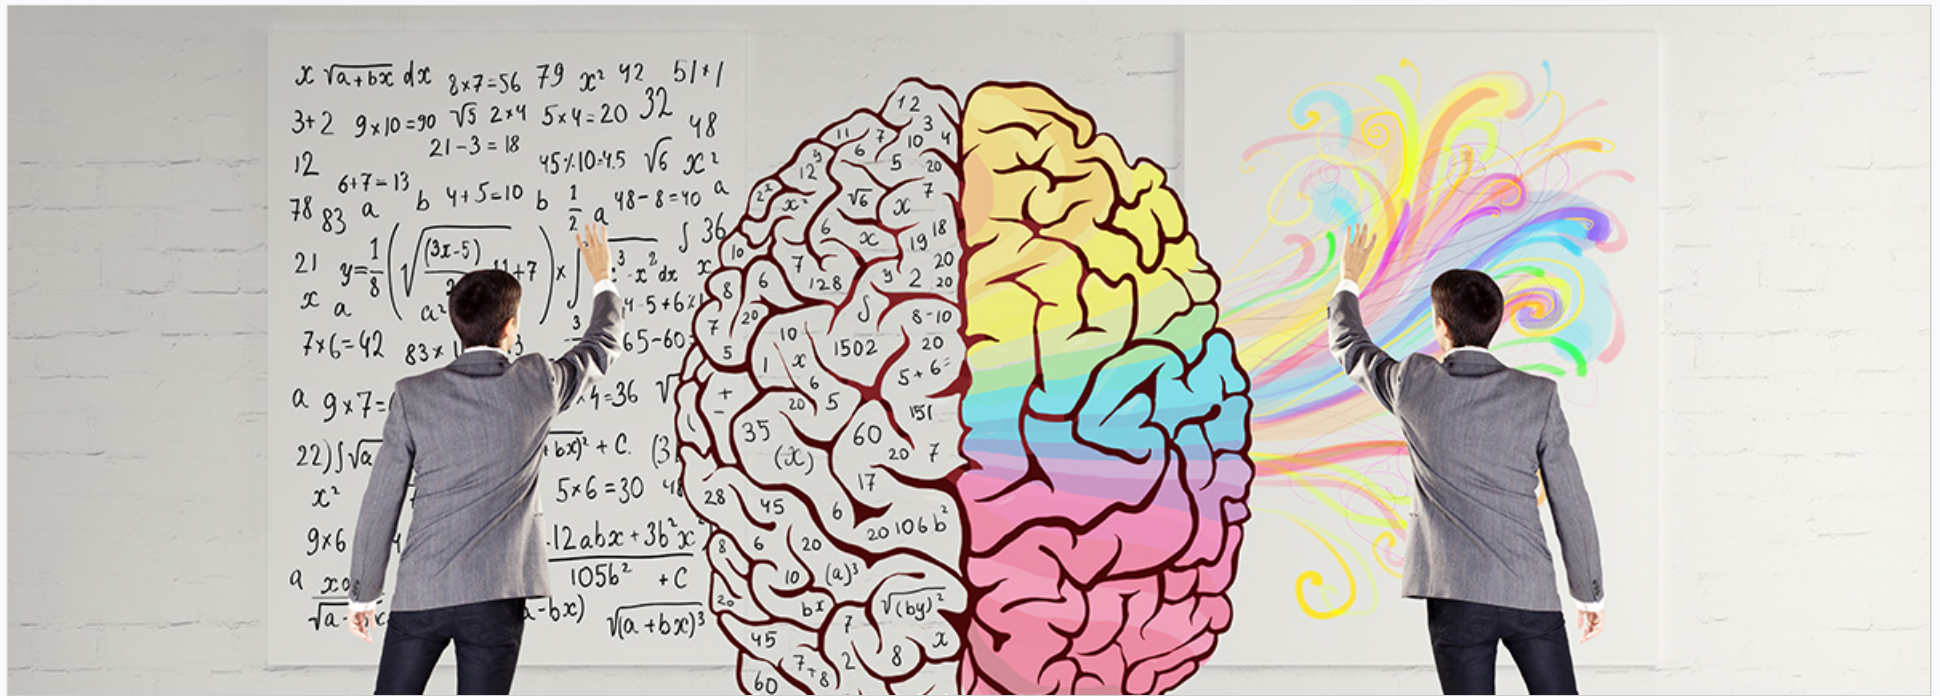 x √a+bx dx 8×7=56 79 x² 42 51+1
3+2 9×10=90 √5 2×4 5×4=20 32
48
21-3=18
12 45%10=4.5 √6 x²
6+7=13 b 4+5=10 b 1/2 48-8=40 a
78 83 a a
∫ 36
21 y=1/8 (√(3x-5) +7) × ∫ -x² dx x
x a a² 4-5+6%
3
7×6=42 83× 65-60=
a 9×7= ×4=36 √
22)∫√a +bx)² + C. (3
x² 5×6=30 48
9×6 -12abx+3b²x²
105b² +C
a
√a- a-bx) √(a+bx)³
12
11 7 3
6 10 4
12 y 5 20
2ˣ x² √6 x 7
6 x 19 18
10 7 20
8 6 128 y 2 20
7 20 ∫ 8-10
10 1502 20
5 1 x 5+6=
6
+ 20 5 151
-
35 60
(x) 20 7
17
28 45 6 20 106 b²
8 6 20
10 (a)³
20 bx √(by)²
45 7 x
7+8 2 8
60